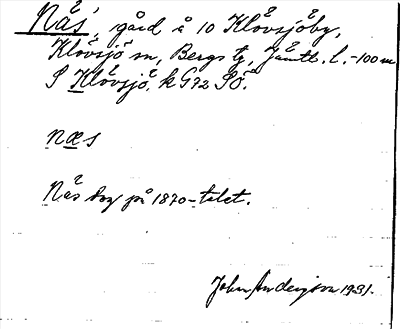 Näs, gård å 10 Klövsjöby,
Klövsjö sn, Bergs tg, Jämtl. l. -100 m
S Klövsjö. k G92 SÖ.
næs
Näs bog på 1870-talet.
John Anderson 1931.